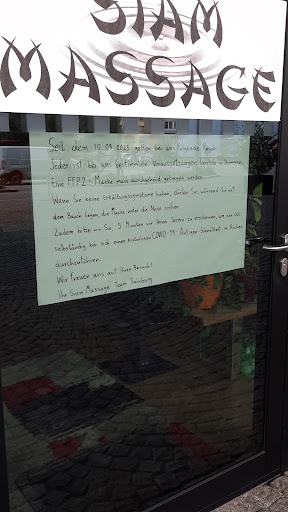 SIAM
MASSAGE
Seit dem 10.01 gelten bei uns folgende Regeln:
Jeder ist bei uns bestimmten Voraussetzungen herzlich willkommen.
Eine FFP2 - Maske muss durchgehend getragen werden.
Wenn Sie keine Erkältungssymptome haben, dürfen Sie, während Sie auf
dem Bauch liegen die Maske unter die Nase ziehen.
Zudem bitten wir Sie, 5 Minuten vor Ihrem Termin zu erscheinen, um
selbständig bei sich einen kostenlosen COVID-19 Antigen-Schnelltest zu machen
durchzuführen.
Wir freuen uns auf Ihren Besuch!
Ihr Siam Massage Team Salzburg